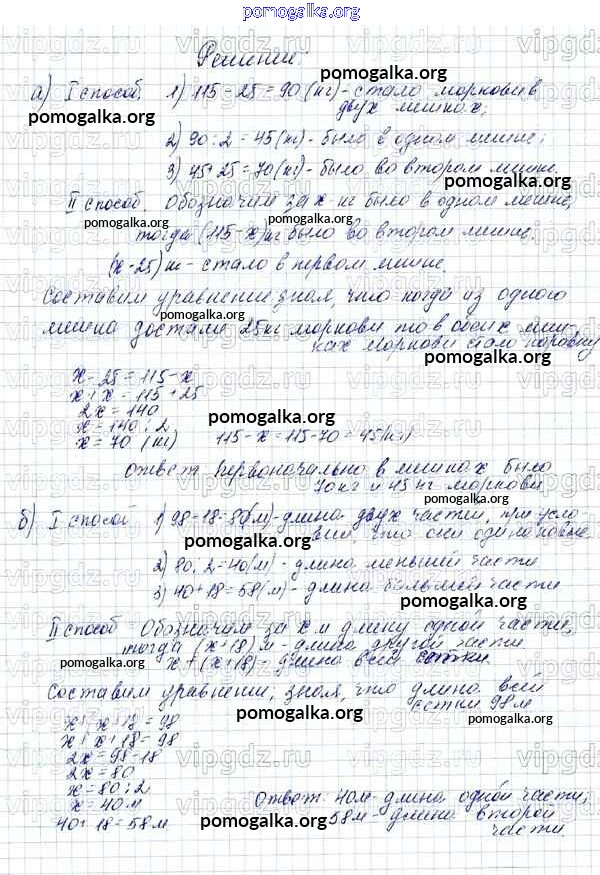 pomogalka.org
Решение:
pomogalka.org
а) I способ. 1) 115 - 25 = 90 (кг) - стало моркови в
двух мешках;
pomogalka.org
2) 90 : 2 = 45 (кг) - было в одном мешке;
3) 45 + 25 = 70 (кг) - было во втором мешке.
pomogalka.org
II способ. Обозначим за x кг было в одном мешке,
pomogalka.org
тогда (115 - x) кг было во втором мешке.
pomogalka.org
(x - 25) кг - стало в первом мешке.
Составим уравнение зная, что когда из одного
мешка достали 25 кг моркови то в обеих меш-
ках моркови стало поровну
pomogalka.org
x - 25 = 115 - x
x + x = 115 + 25
2x = 140
x = 140 : 2
pomogalka.org
x = 70 (кг) 115 - x = 115 - 70 = 45 (кг)
Ответ: Первоначально в мешках было
70 кг и 45 кг моркови
б) I способ 1) 98 - 18 = 80 (м) - длина двух частей, при усло-
вии, что они одинаковые
pomogalka.org
2) 80 : 2 = 40 (м) - длина меньшей части
3) 40 + 18 = 58 (м) - длина большей части
pomogalka.org
II способ Обозначим за x м длину одной части,
тогда (x + 18) м - длина другой части
pomogalka.org
x + (x + 18) - длина всей сетки.
Составим уравнение, зная, что длина всей
сетки 98 м
pomogalka.org
pomogalka.org
x + x + 18 = 98
x + x + 18 = 98
2x = 98 - 18
2x = 80
x = 80 : 2
x = 40 м
Ответ: 40 м - длина одной части;
40 + 18 = 58 м
pomogalka.org
58 м - длина второй
части.
vipgdz.ru